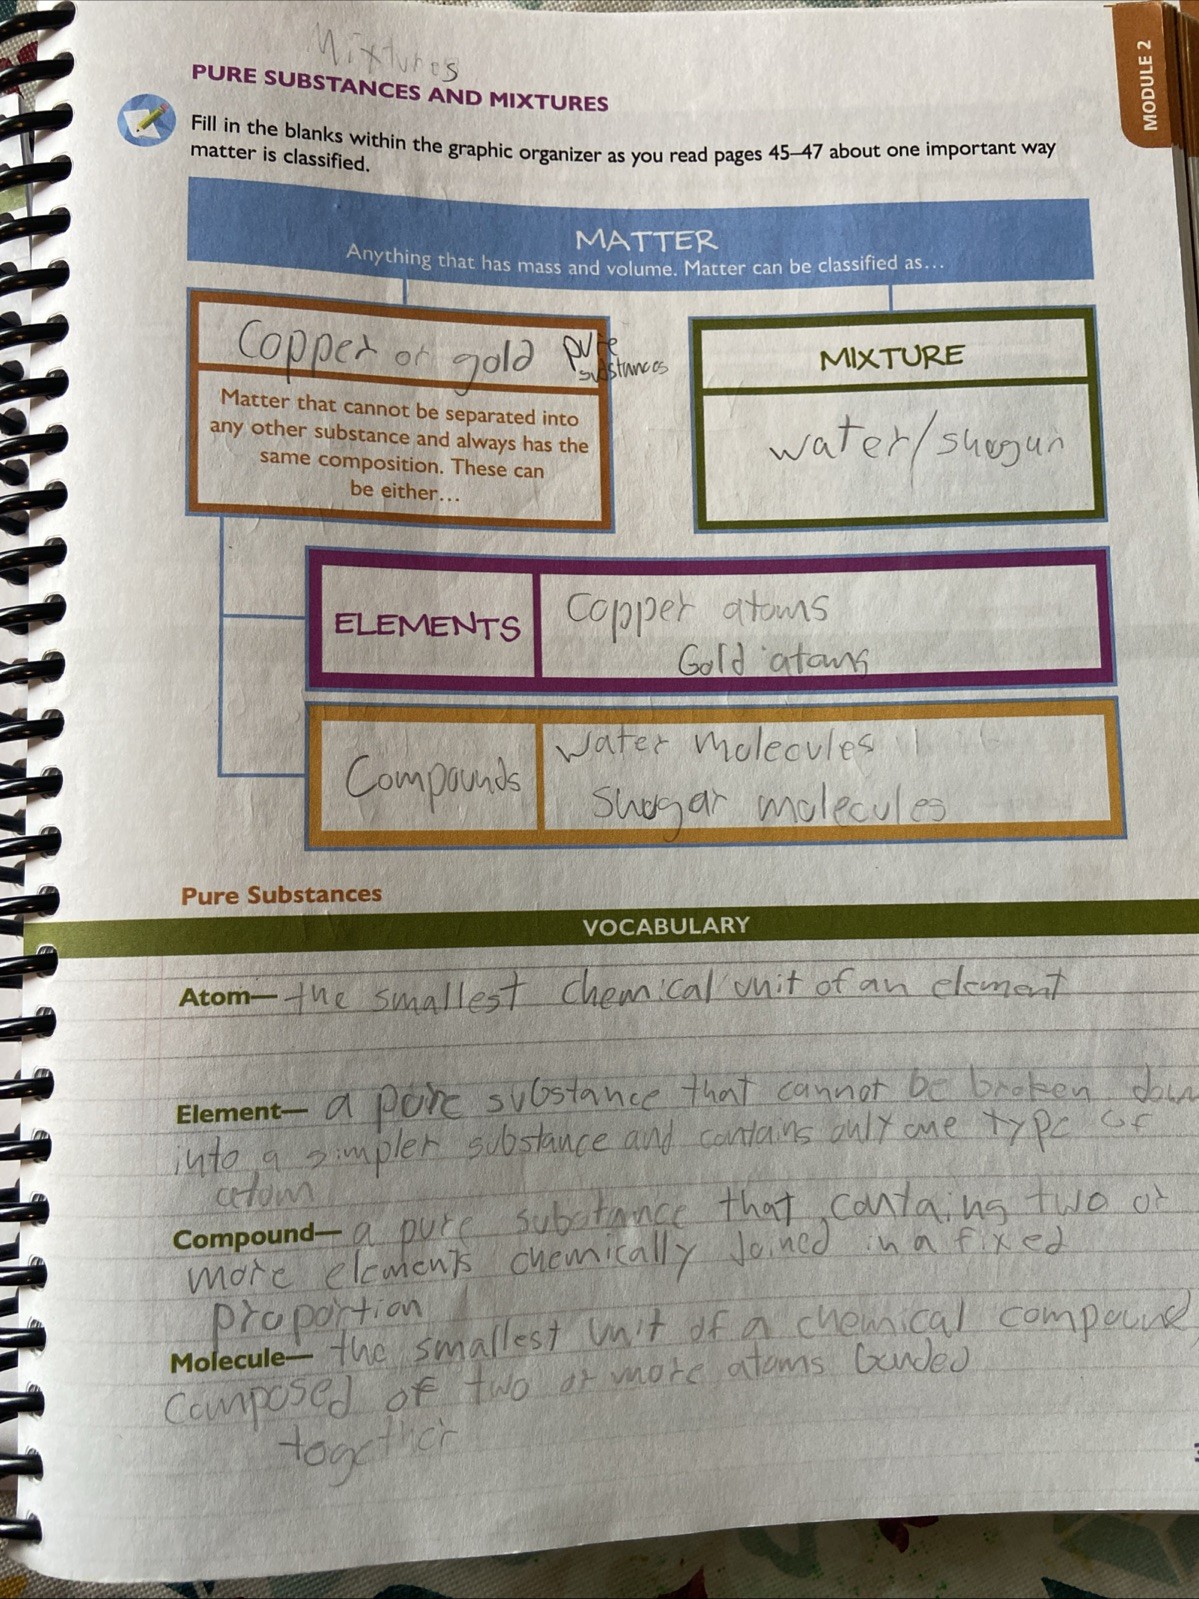 Mixtures
PURE SUBSTANCES AND MIXTURES
MODULE 2
Fill in the blanks within the graphic organizer as you read pages 45–47 about one important way
matter is classified.
MATTER
Anything that has mass and volume. Matter can be classified as…
Copper or gold pure
substances
Matter that cannot be separated into
any other substance and always has the
same composition. These can
be either…
MIXTURE
water/shogun
ELEMENTS
Copper atoms
Gold atoms
Compounds
Water molecules
Shugar molecules
Pure Substances
VOCABULARY
Atom— the smallest chemical unit of an element
Element— a pure substance that cannot be broken down
into a simpler substance and contains only one type of
atom
Compound— a pure substance that containg two or
more elements chemically joined in a fixed
proportion
Molecule— the smallest unit of a chemical compound
Composed of two or more atoms bonded
together